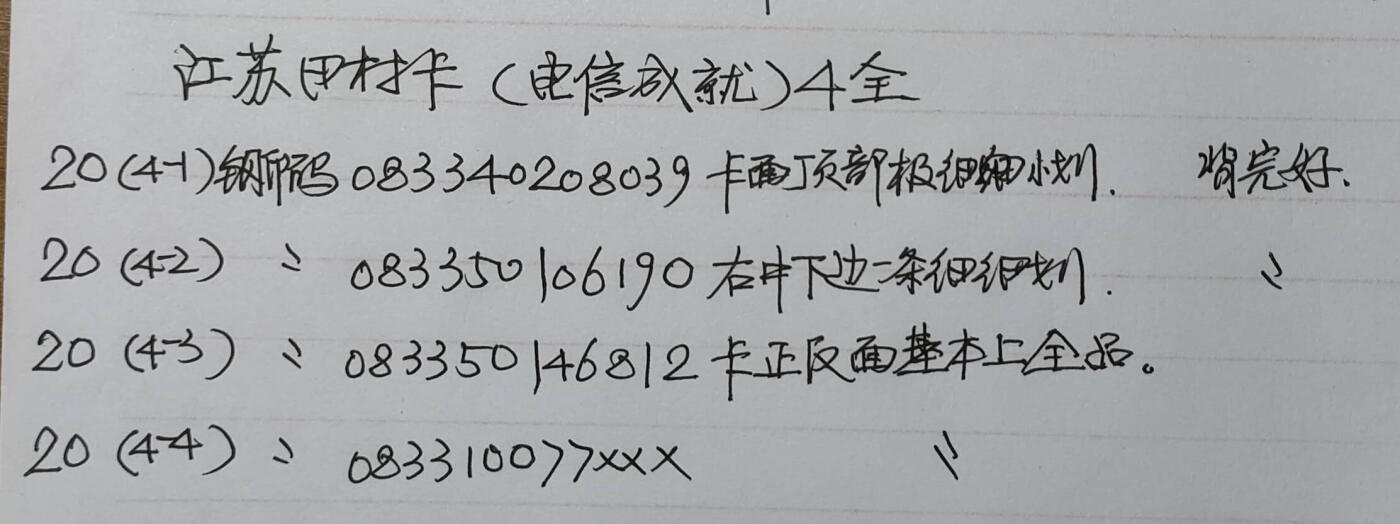 江苏田村卡（电信成就）4全
20(4-1)钢印码 083340208039 卡面顶部极细细小划. 背完好.
20 (4-2) 〃 083350106190 右中下边一条细细划. 〃
20 (4-3) 〃 083350146812 卡正反面基本上全品。
20 (4-4) 〃 083310077xxx 〃